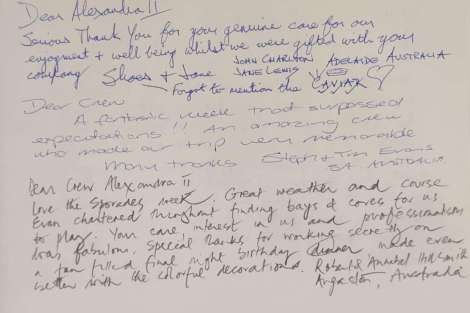 Dear Alexandra II
Serious Thank You for your genuine care for our
enjoyment + well being whilst we were gifted with your
company
JOHN CHARLTON ADELAIDE AUSTRALIA
JANE LEWIS
Forgot to mention the CAVIAR
Dear Crew
A fantastic week that surpassed
expectations!! An amazing crew
who made our trip very memorable
Many thanks Steph + Tim Evans
SA AUSTRALIA
Dear Crew Alexandra II
Love the Sporades week. Great weather and course
Evan chartered throughout finding bays & coves for us
to play. Your care, interest in us and professionalism
was fabulous. Special thanks for working secretly on
a fun filled final night birthday dinner made even
better with the colorful decorations. Robert & Annabel Hill Smith
Angaston, Australia